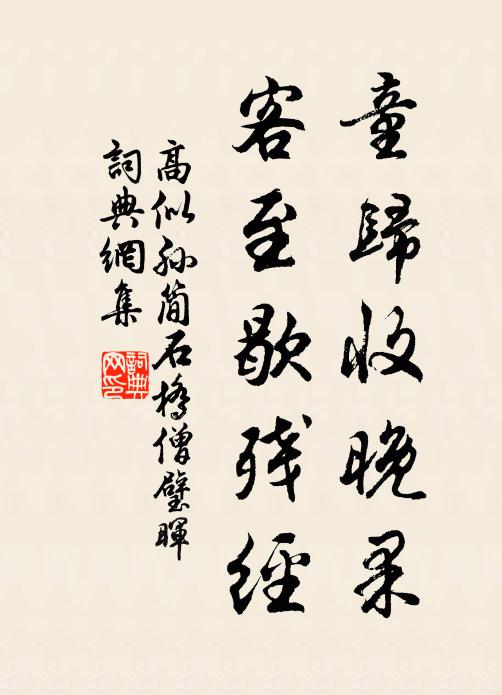 童歸收晚果
客至歇殘經
高似孫簡石橋僧璧暉
詞典網集
詞典網印